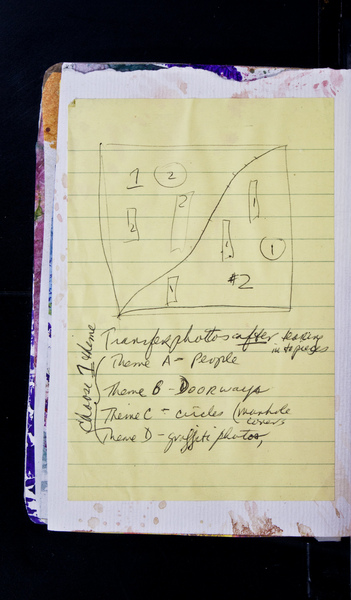 1 2
2 2
1
1
1
1
#2
Transfer photos after tearing
into pages
choose 1 theme
Theme A - People
Theme B - Doorways
Theme C - circles (manhole
covers
Theme D - graffiti photos,